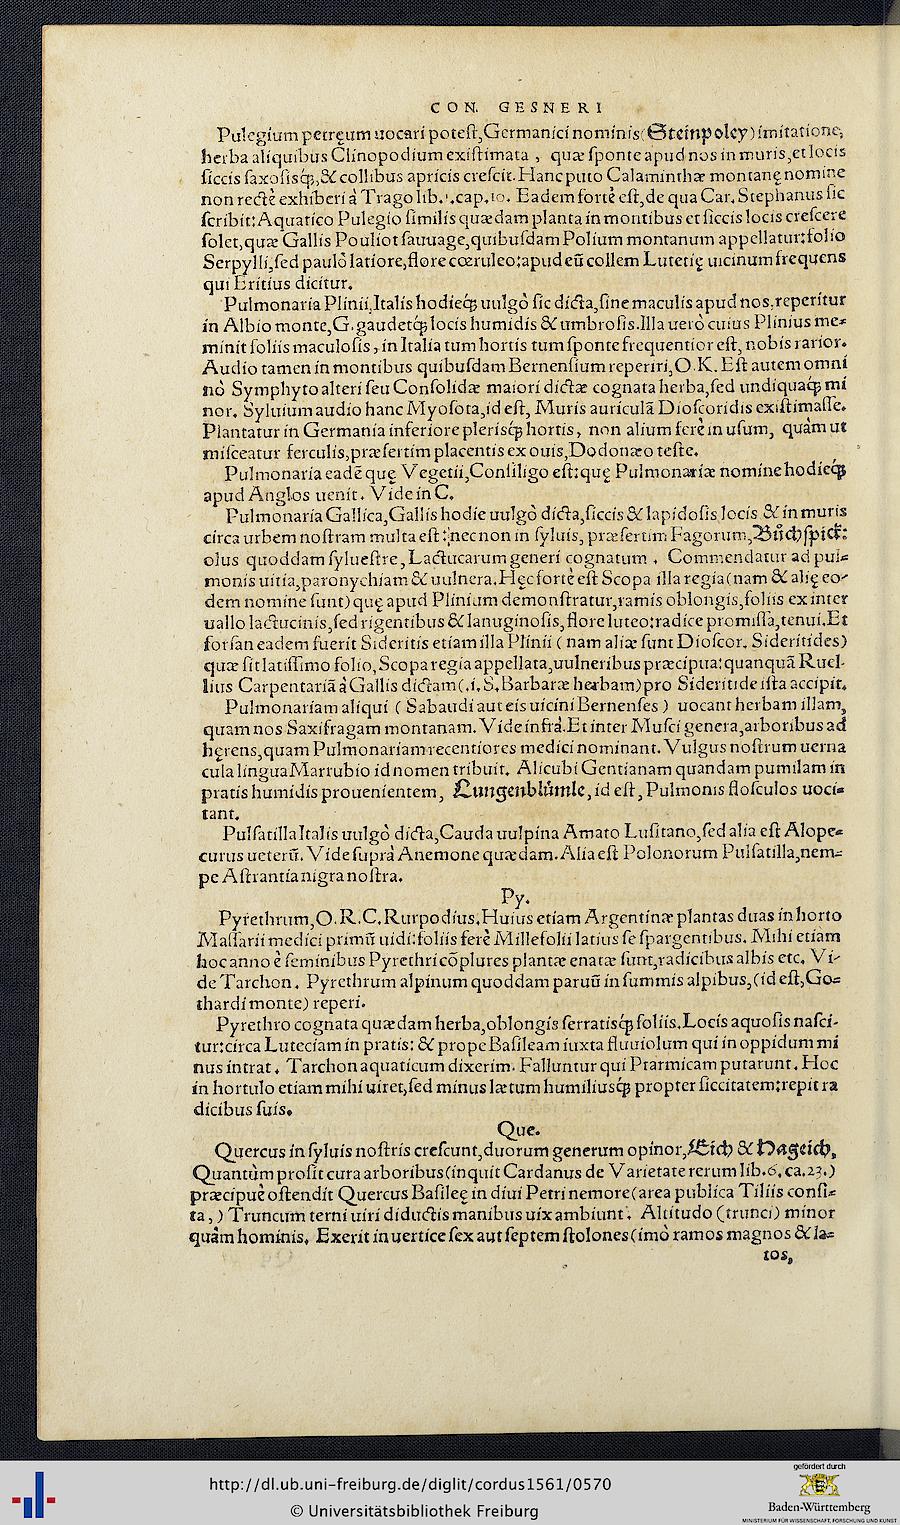 CON. GESNERI
Pulegium petręum uocari poteſt, Germanici nominis (Steinpoley) imitatione,
herba aliquibus Clinopodium exiſtimata, quæ ſponte apud nos in muris, et locis
ſiccis ſaxoſisq́;, & collibus apricis creſcit. Hanc puto Calaminthæ montanę nomine
non rectè exhiberi à Trago lib.1.cap.10. Eadem fortè eſt, de qua Car. Stephanus ſic
ſcribit: Aquatico Pulegio ſimilis quædam planta in montibus et ſiccis locis creſcere
ſolet, quæ Gallis Pouliot ſauuage, quibuſdam Polium montanum appellatur: folio
Serpylli, ſed paulò latiore, flore cœruleo: apud eũ collem Lutetię uicinum frequens
qui Eritius dicitur.
Pulmonaria Plinii, Italis hodieq́; uulgò ſic dicta, ſine maculis apud nos, reperitur
in Albio monte, G. gaudetq́; locis humidis & umbroſis. Illa uerò cuius Plinius me=
minit foliis maculoſis, in Italia tum hortis tum ſponte frequentior eſt, nobis rarior.
Audio tamen in montibus quibuſdam Bernenſium reperiri, O.K. Eſt autem omni
nò Symphyto alteri ſeu Conſolidæ maiori dictæ cognata herba, ſed undiquaq́; mi
nor. Syluium audio hanc Myoſota, id eſt, Muris auriculã Dioſcoridis exiſtimaſſe.
Plantatur in Germania inferiore pleriſq́; hortis, non alium ferè in uſum, quàm ut
miſceatur ferculis, præſertim placentis ex ouis, Dodonæo teſte.
Pulmonaria eadẽ quę Vegetii, Conſiligo eſt: quę Pulmonariæ nomine hodieq́;
apud Anglos uenit. Vide in C.
Pulmonaria Gallica, Gallis hodie uulgò dicta, ſiccis & lapidoſis locis & in muris
circa urbem noſtram multa eſt: nec non in ſyluis, præſertim Fagorum, Bůchſpick:
olus quoddam ſylueſtre, Lactucarum generi cognatum. Commendatur ad pul=
monis uitia, paronychiam & uulnera. Hęc fortè eſt Scopa illa regia (nam & alię eo-
dem nomine ſunt) quę apud Plinium demonſtratur, ramis oblongis, foliis ex inter
uallo lactucinis, ſed rigentibus & lanuginoſis, flore luteo: radice promiſſa, tenui. Et
forſan eadem fuerit Sideritis etiam illa Plinii (nam aliæ ſunt Dioſcor. Sideritides)
quæ ſit latiſſimo folio, Scopa regia appellata, uulneribus præcipua: quanquã Ruel-
lius Carpentariã à Gallis dictam (.i. S. Barbaræ herbam) pro Sideritide iſta accipit.
Pulmonariam aliqui (Sabaudi aut eis uicini Bernenſes) uocant herbam illam,
quam nos Saxifragam montanam. Vide infrà. Et inter Muſci genera, arboribus ad
hęrens, quam Pulmonariam recentiores medici nominant. Vulgus noſtrum uerna
cula lingua Marrubio id nomen tribuit. Alicubi Gentianam quandam pumilam in
pratis humidis prouenientem, Lungenblůmle, id eſt, Pulmonis floſculos uoci=
tant.
Pulſatilla Italis uulgò dicta, Cauda uulpina Amato Luſitano, ſed alia eſt Alope=
curus ueterũ. Vide ſuprà Anemone quædam. Alia eſt Polonorum Pulſatilla, nem=
pe Aſtrantia nigra noſtra.
Py.
Pyrethrum, O.R.C. Rurpodius. Huius etiam Argentinæ plantas duas in horto
Maſſarii medici primũ uidi: foliis ferè Millefolii latius ſe ſpargentibus. Mihi etiam
hoc anno è ſeminibus Pyrethri cõplures plantæ enatæ ſunt, radicibus albis etc. Vi-
de Tarchon. Pyrethrum alpinum quoddam paruũ in ſummis alpibus, (id eſt, Go=
thardi monte) reperi.
Pyrethro cognata quædam herba, oblongis ſerratisq́; foliis. Locis aquoſis naſci-
tur: circa Luteciam in pratis: & prope Baſileam iuxta fluuiolum qui in oppidum mi
nus intrat. Tarchon aquaticum dixerim. Falluntur qui Ptarmicam putarunt. Hoc
in hortulo etiam mihi uiret, ſed minus lætum humiliusq́; propter ſiccitatem: repit ra
dicibus ſuis.
Que.
Quercus in ſyluis noſtris creſcunt, duorum generum opinor, Eich & Hageich,
Quantùm proſit cura arboribus (inquit Cardanus de Varietate rerum lib.6. ca.23.)
præcipuè oſtendit Quercus Baſileę in diui Petri nemore (area publica Tiliis conſi=
ta,) Truncum terni uiri diductis manibus uix ambiunt. Altitudo (trunci) minor
quàm hominis. Exerit in uertice ſex aut ſeptem ſtolones (imò ramos magnos & la=
tos,
http://dl.ub.uni-freiburg.de/diglit/cordus1561/0570
© Universitätsbibliothek Freiburg
gefördert durch
Baden-Württemberg
MINISTERIUM FÜR WISSENSCHAFT, FORSCHUNG UND KUNST